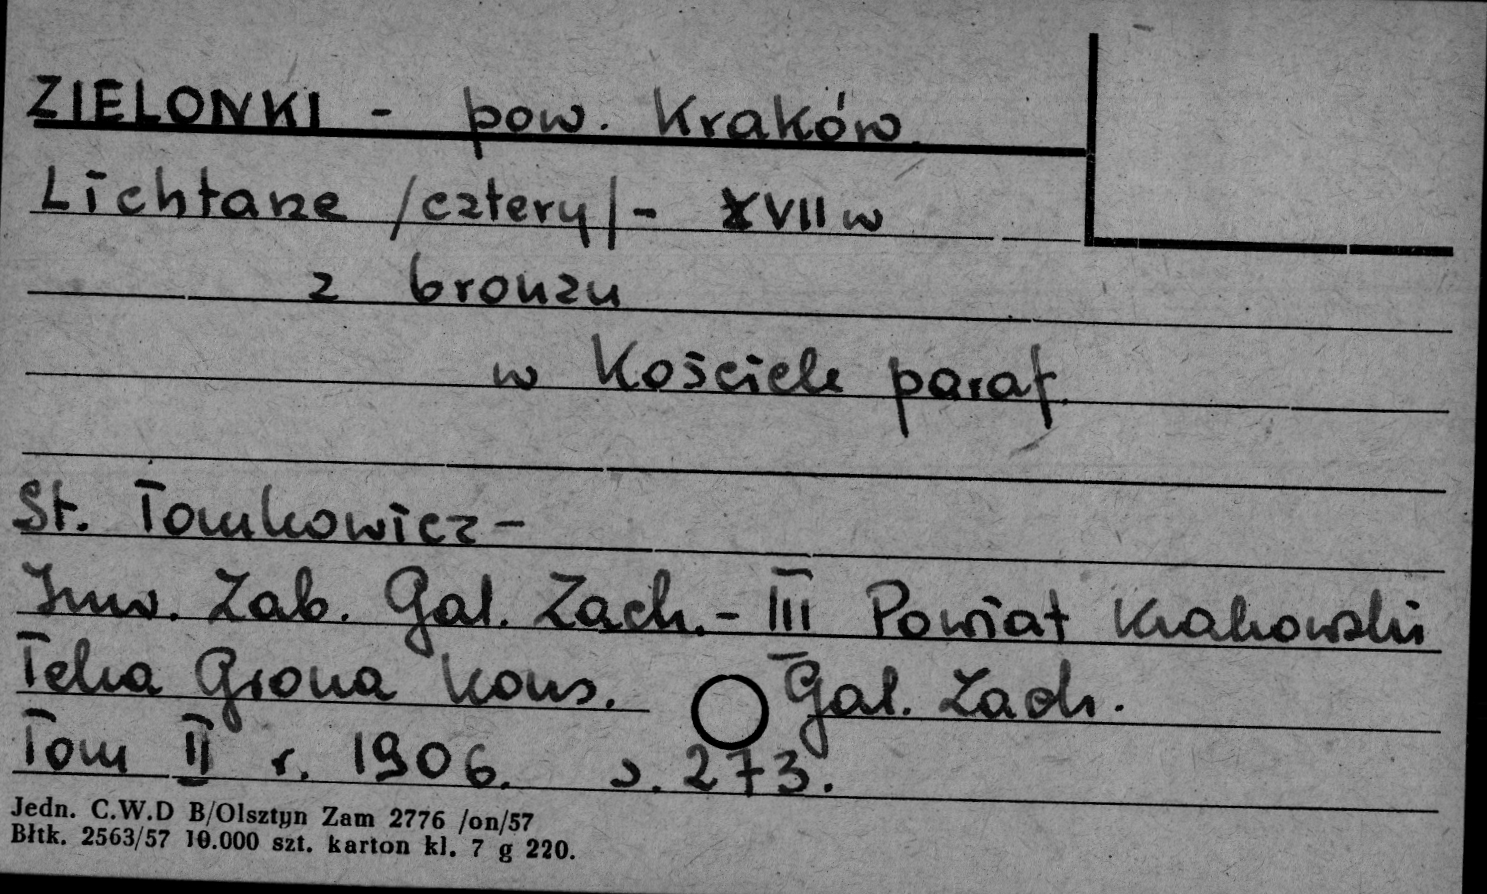 ZIELONKI - pow. Kraków.
Lichtarze /cztery/ - XVII w
z bronzu
w Kościele paraf.
St. Tomkowicz -
Inw. Zab. Gal. Zach. - III Powiat Krakowski
Teka Grona Kons. Gal. Zach.
Tom II r. 1906. s. 273.
Jedn. C.W.D B/Olsztyn Zam 2776 /on/57
Błtk. 2563/57 10.000 szt. karton kl. 7 g 220.